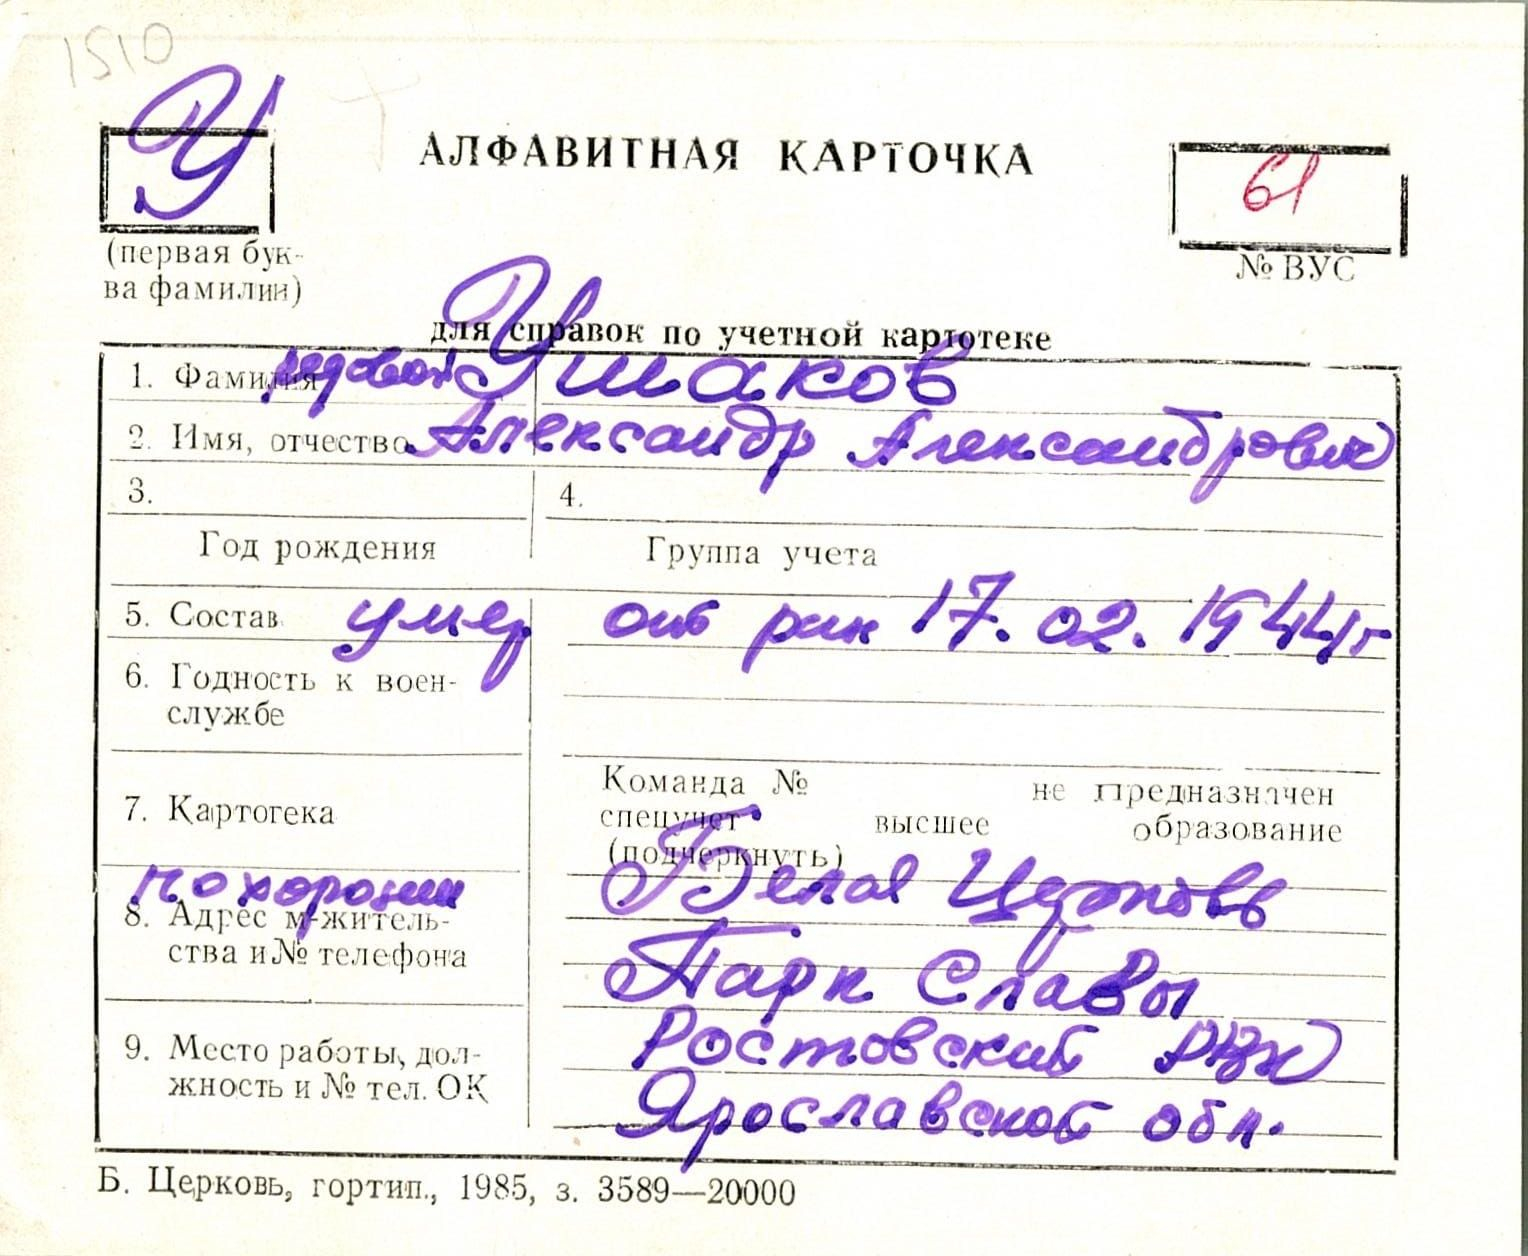 1510
У
АЛФАВИТНАЯ КАРТОЧКА
61
(первая бук-
ва фамилии)
№ ВУС
для справок по учетной картотеке
1. Фамилия рядовой Ушаков
2. Имя, отчество Александр Александрович
3.
4.
Год рождения
Группа учета
5. Состав умер от ран 17.02.1944г
6. Годность к воен-
службе
Команда № не предназначен
7. Картотека
спецучет высшее образование
(подчеркнуть)
похоронен Белая Церковь
8. Адрес м-житель-
ства и № телефона
Парк Славы
Ростовский РВК
9. Место работы, дол-
жность и № тел. ОК
Ярославской обл.
Б. Церковь, гортип., 1985, з. 3589—20000